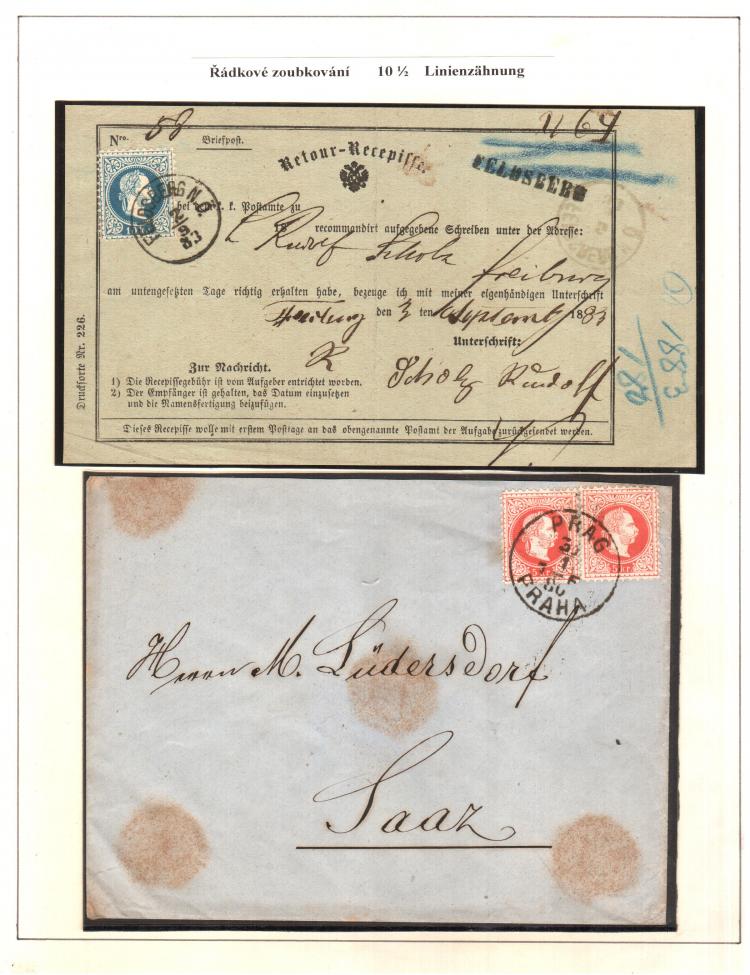 Řádkové zoubkování 10 ½ Linienzähnung
Nro. 58 Briefpost.
Retour-Recepisse
FELDSBERG
FELDSBERG N.Ö.
2/9
83
bei dem k. k. Postamte zu
18 recommandirt aufgegebene Schreiben unter der Adresse:
Rudolf Scholz
Freiburg
am untengesetzten Tage richtig erhalten habe, bezeuge ich mit meiner eigenhändigen Unterschrift
Freiburg den 3 ten September 1883
Unterschrift:
Scholz Rudolf
Zur Nachricht.
1) Die Recepissegebühr ist vom Aufgeber entrichtet worden.
2) Der Empfänger ist gehalten, das Datum einzusetzen
und die Namensfertigung beizufügen.
Dieses Recepisse wolle mit erstem Posttage an das obengenannte Postamt der Aufgabe zurückgesendet werden.
Drucksorte Nr. 226.
1883
PRAG
PRAHA
5 kr
Herrn M. Lüdersdorf
Saaz